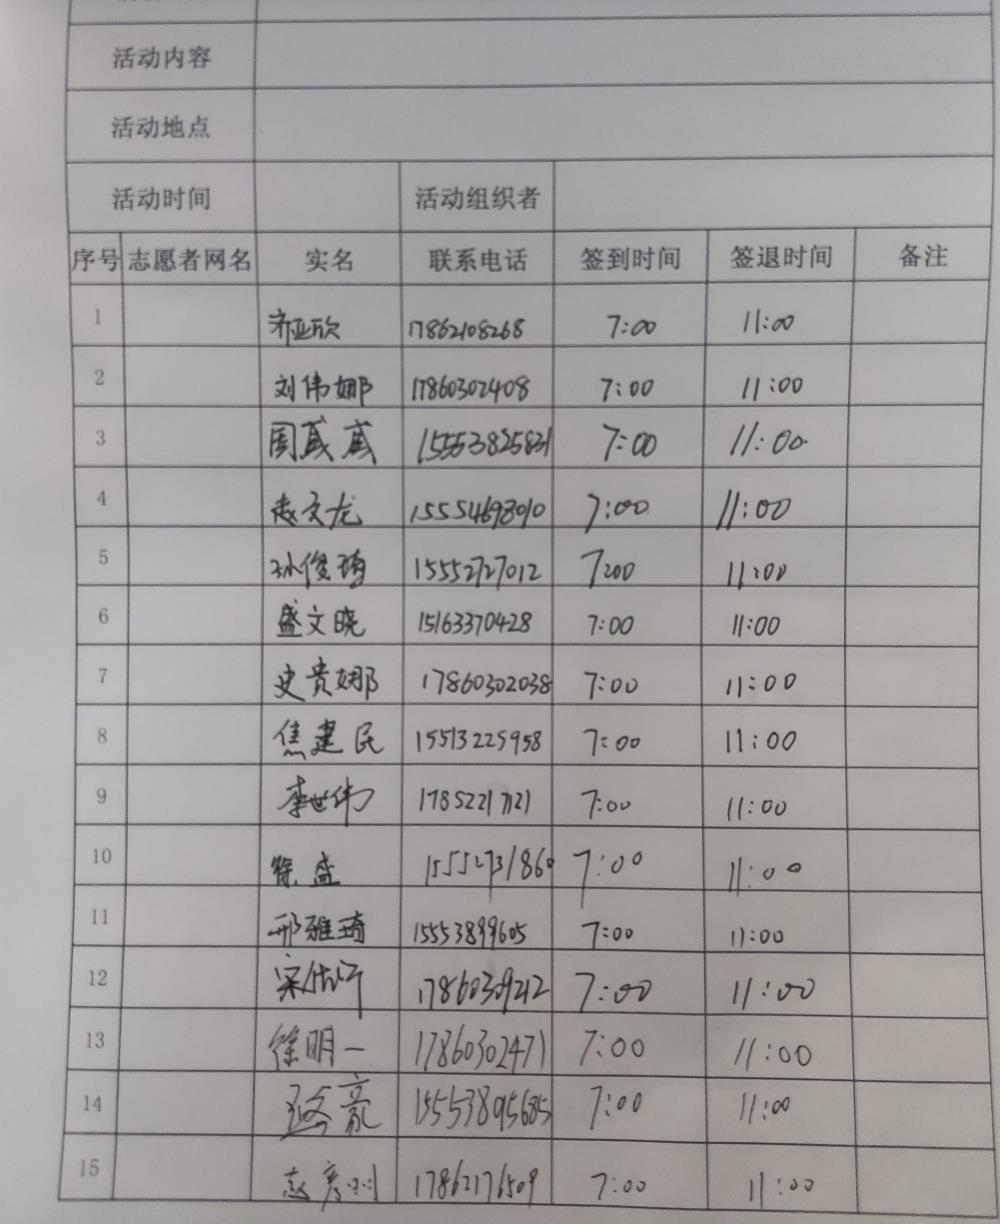 活动内容
活动地点
活动时间 活动组织者
序号 志愿者网名 实名 联系电话 签到时间 签退时间 备注
1 齐亚欣 17862108268 7:00 11:00
2 刘伟娜 17860302408 7:00 11:00
3 周威威 15553825831 7:00 11:00
4 赵文龙 15554698010 7:00 11:00
5 孙俊琦 15552727012 7:00 11:00
6 盛文晓 15163370428 7:00 11:00
7 史贵娜 17860302038 7:00 11:00
8 焦建民 15513225958 7:00 11:00
9 李世伟 17852217121 7:00 11:00
10 徐盛 15552731860 7:00 11:00
11 邢雅琦 15553899605 7:00 11:00
12 17860309212 7:00 11:00
13 徐明一 17860302471 7:00 11:00
14 15553895685 7:00 11:00
15 17862176509 7:00 11:00